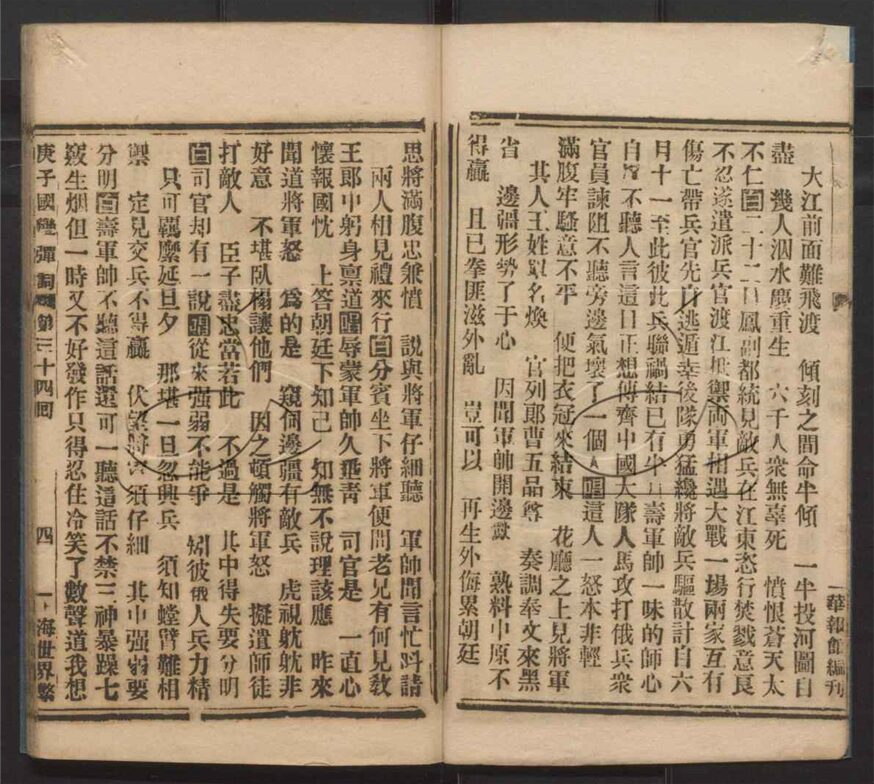 大江前面難飛渡　傾刻之間命半傾　一半投河圖自
盡　幾人泅水慶重生　六千人衆無辜死　憤恨蒼天太
不仁白二十二日鳳副都統見敵兵在江東恣行焚戮意良
不忍遂遣派兵官渡江抵禦両軍相遇大戰一塲兩家互有
傷亡帶兵官先自逃遁幸後隊勇猛纔將敵兵驅散計自六
月十一至此彼此兵聯禍結已有半月壽軍帥一味的師心
自 不聽人言這日正想傳齊中國大隊人馬攻打俄兵衆
官員諫阻不聽旁邊氣壞了一個人唱這人一怒本非輕
滿腹牢騷意不平　便把衣冠來結束　花廳之上見將軍
其人王姓單名煥　官列郎曹五品尊　奏調奉文來黑
省　邊疆形勢了于心　因聞軍帥開邊釁　熟料中原不
得贏　且已拳匪滋外亂　豈可以　再生外侮累朝廷
華報館編刊
思將滿腹忠兼憤　說與將軍仔細聽　軍帥聞言忙呌請
兩人相見禮來行白分賓坐下將軍便問老兄有何見敎
王郎中躬身禀道唱辱蒙軍帥久垂靑　司官是　一直心
懷報國忱　上答朝廷下知己　知無不說理該應　昨來
聞道將軍怒　爲的是　窺伺邊疆有敵兵　虎視躭躭非
好意　不堪臥榻讓他們　因之頓觸將軍怒　擬遣師徒
打敵人　臣子盡忠當若此　不過是　其中得失要分明
白司官却有一說唱從來强弱不能爭　矧彼俄人兵力精
只可羈縻延旦夕　那堪一旦忽興兵　須知螳臂難相
禦　定見交兵不得贏　伏望將軍須仔細　其中强弱要
分明白壽軍帥不聽這話還可一聽這話不禁三神暴躁七
竅生烟但一時又不好發作只得忍住冷笑了數聲道我想
庚子國變彈詞 第三十四回　四　海世界繁